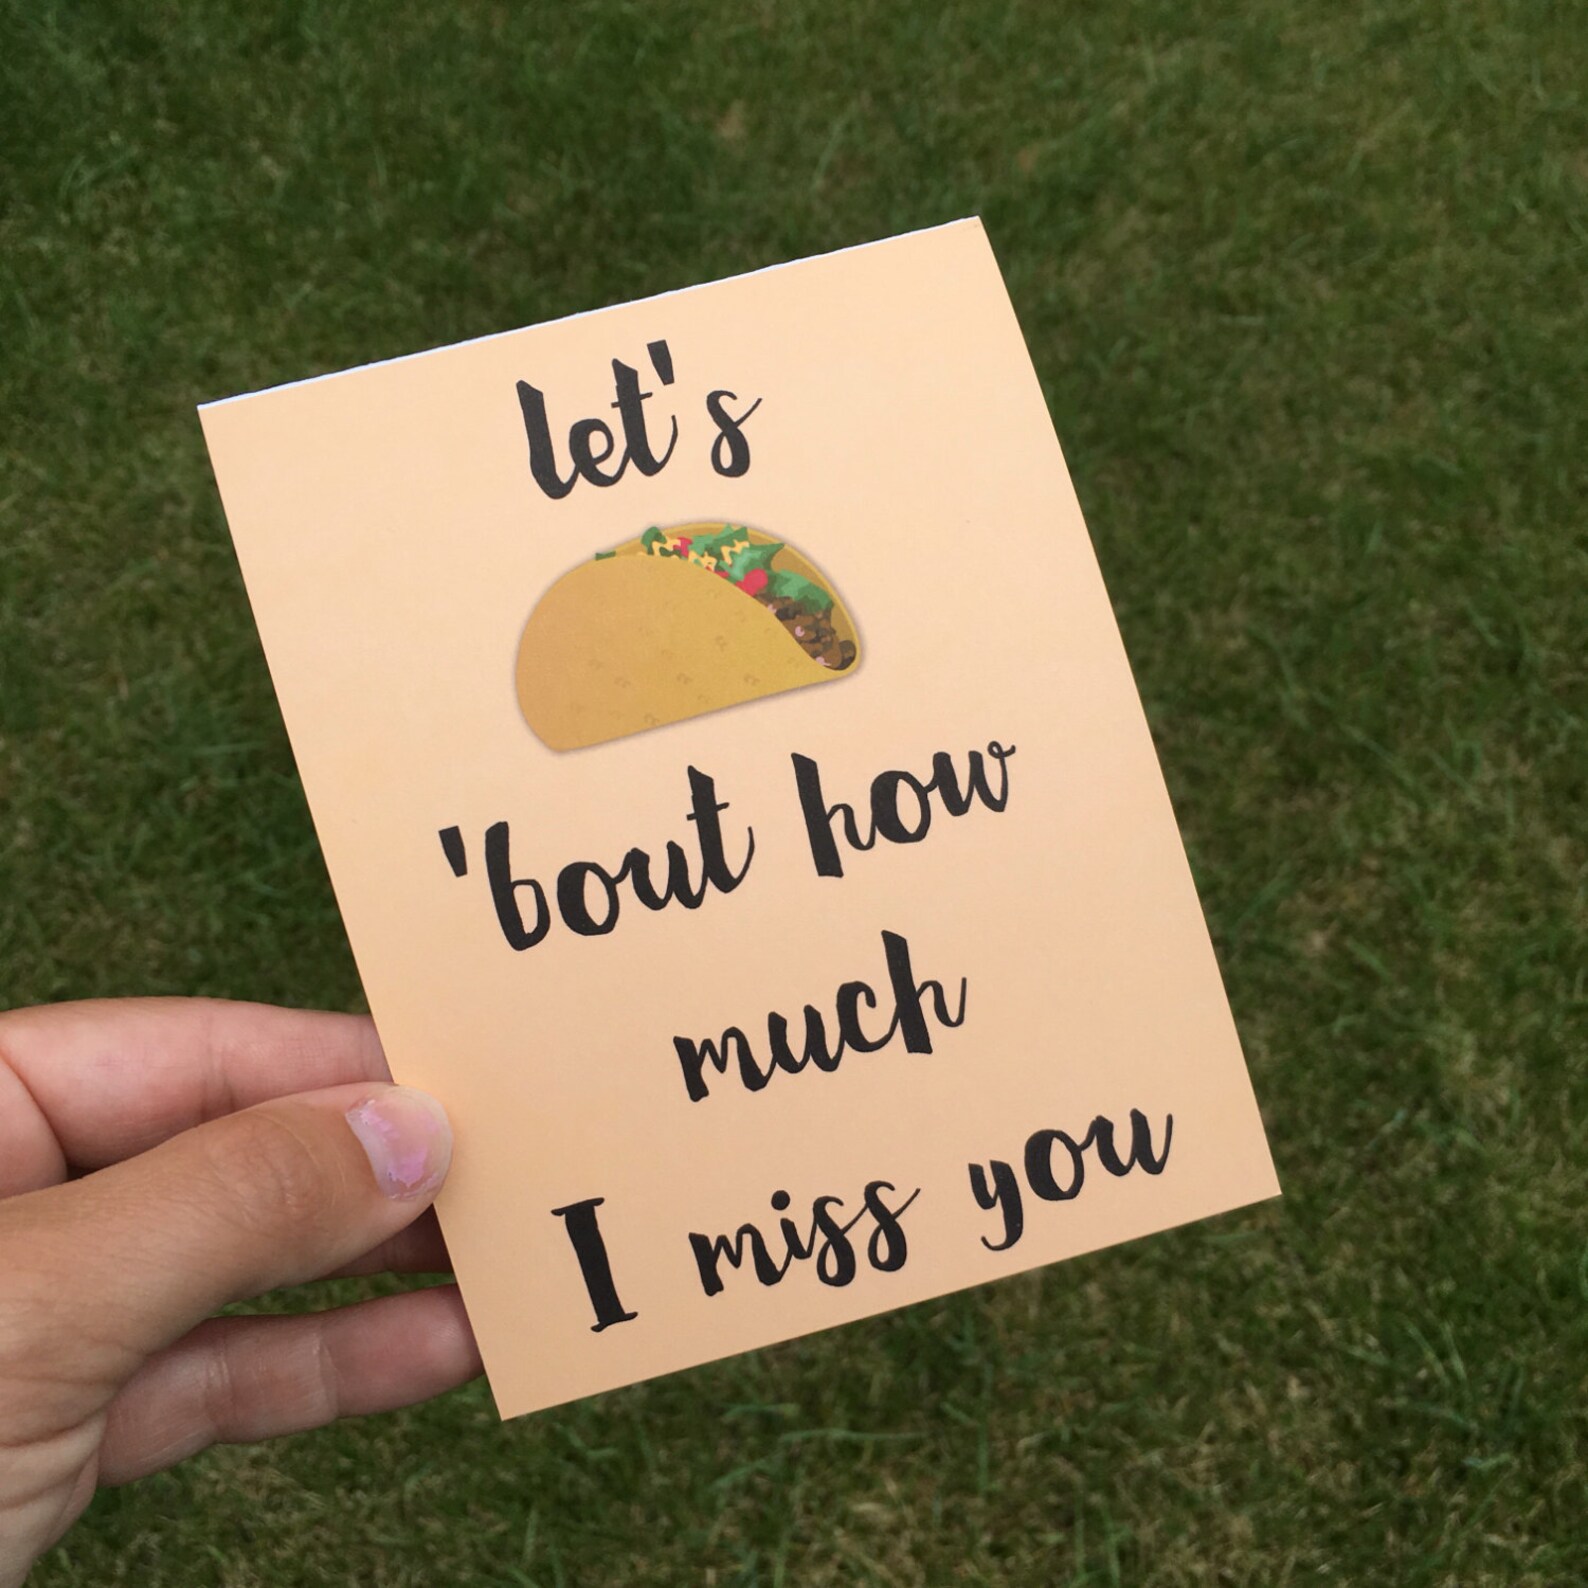 let's
'bout how
much
I miss you